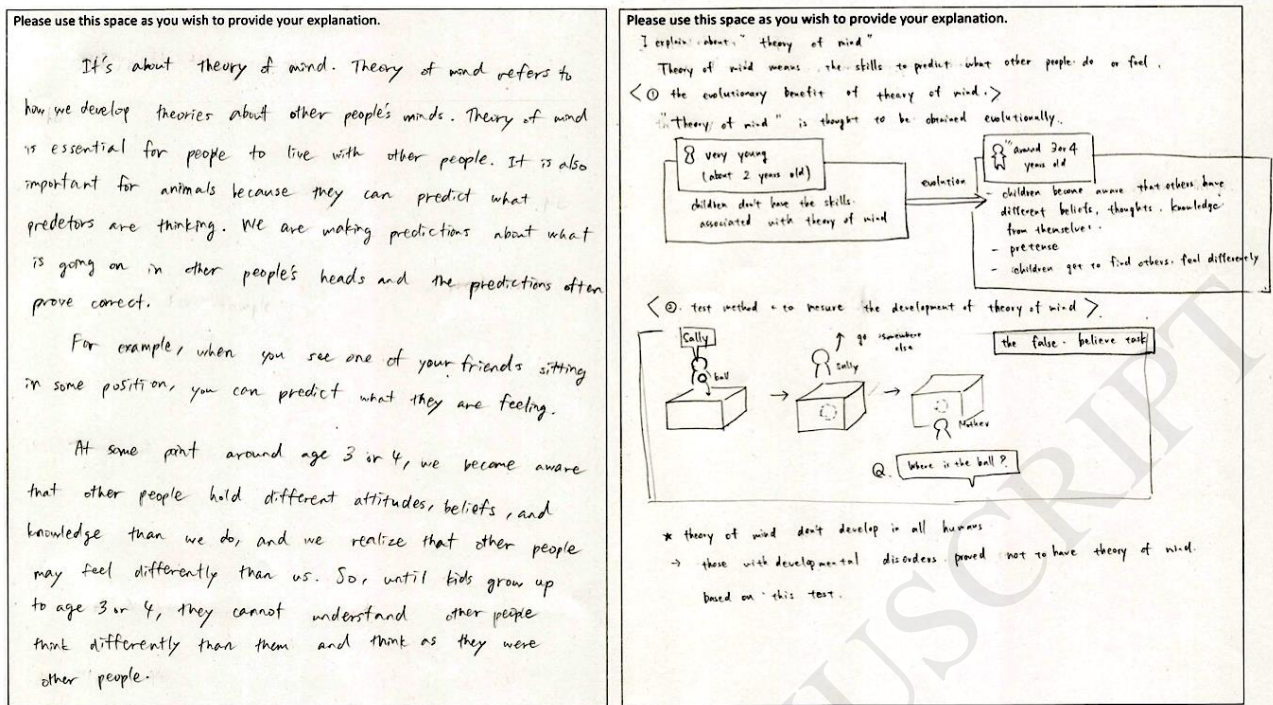 Please use this space as you wish to provide your explanation.
It's about theory of mind. Theory of mind refers to
how we develop theories about other people's minds. Theory of mind
is essential for people to live with other people. It is also
important for animals because they can predict what
predetors are thinking. We are making predictions about what
is going on in other people's heads and the predictions often
prove correct.
For example, when you see one of your friends sitting
in some position, you can predict what they are feeling.
At some point around age 3 or 4, we become aware
that other people hold different attitudes, beliefs, and
knowledge than we do, and we realize that other people
may feel differently than us. So, until kids grow up
to age 3 or 4, they cannot understand other people
think differently than them and think as they were
other people.
Please use this space as you wish to provide your explanation.
I explain about "theory of mind"
Theory of mind means the skills to predict what other people do or feel.
<① the evolutionary benefit of theory of mind.>
"Theory of mind" is thought to be obtained evolutionally.
very young
(about 2 years old)
children don't have the skills
associated with theory of mind
evolution
around 3 or 4
years old
- children become aware that others have
different beliefs, thoughts, knowledge
from themselves.
- pretense
- children get to find others feel differently
<②. test method to mesure the development of theory of mind>
the false-believe task
Sally
ball
go somewhere
else
Sally
Mother
Q. Where is the ball?
* theory of mind don't develop in all humans
→ those with developmental disorders proved not to have theory of mind.
based on this test.
USCRIPT